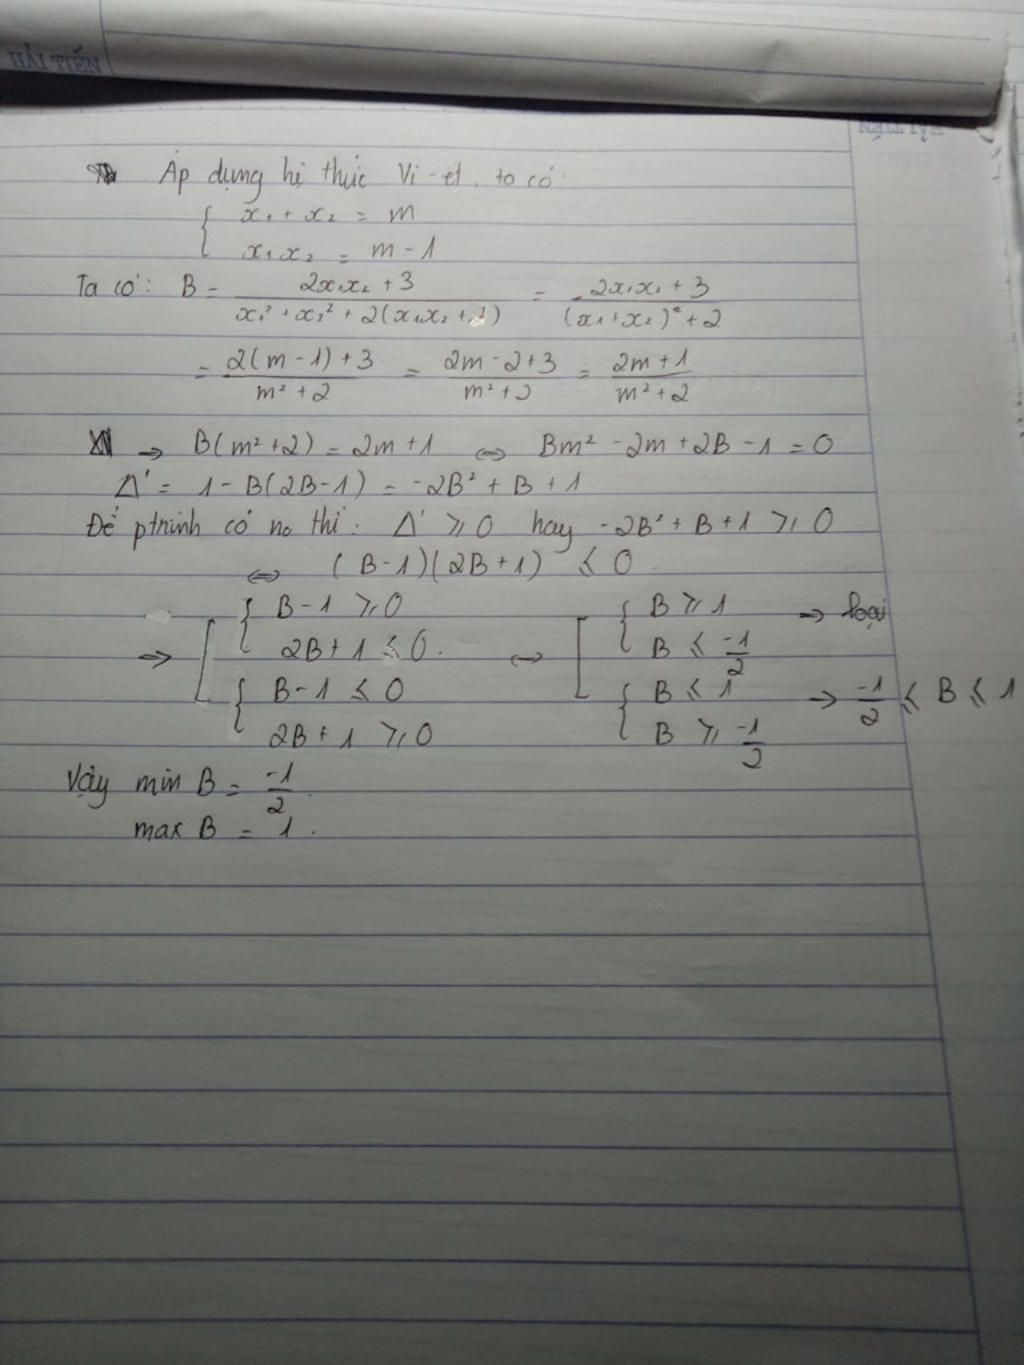 HẢI TIẾN
HẢI TIẾN
Áp dụng hệ thức Vi-et, ta có:
{ x₁ + x₂ = m
x₁x₂ = m - 1
Ta có: B = (2x₁x₂ + 3)/(x₁² + x₂² + 2(x₁x₂ + 1)) = (2x₁x₂ + 3)/((x₁ + x₂)² + 2)
= (2(m - 1) + 3)/(m² + 2) = (2m - 2 + 3)/(m² + 2) = (2m + 1)/(m² + 2)
→ B(m² + 2) = 2m + 1 ⇔ Bm² - 2m + 2B - 1 = 0
Δ' = 1 - B(2B - 1) = -2B² + B + 1
Để ptrình có no thì: Δ' ⩾ 0 hay -2B² + B + 1 ⩾ 0
⇔ (B - 1)(2B + 1) ⩽ 0.
⇒ [ { B - 1 ⩾ 0 ⇔ [ { B ⩾ 1 → loại
2B + 1 ⩽ 0. B ⩽ -1/2
{ B - 1 ⩽ 0 { B ⩽ 1 → -1/2 ⩽ B ⩽ 1
2B + 1 ⩾ 0 B ⩾ -1/2
Vậy min B = -1/2.
max B = 1.